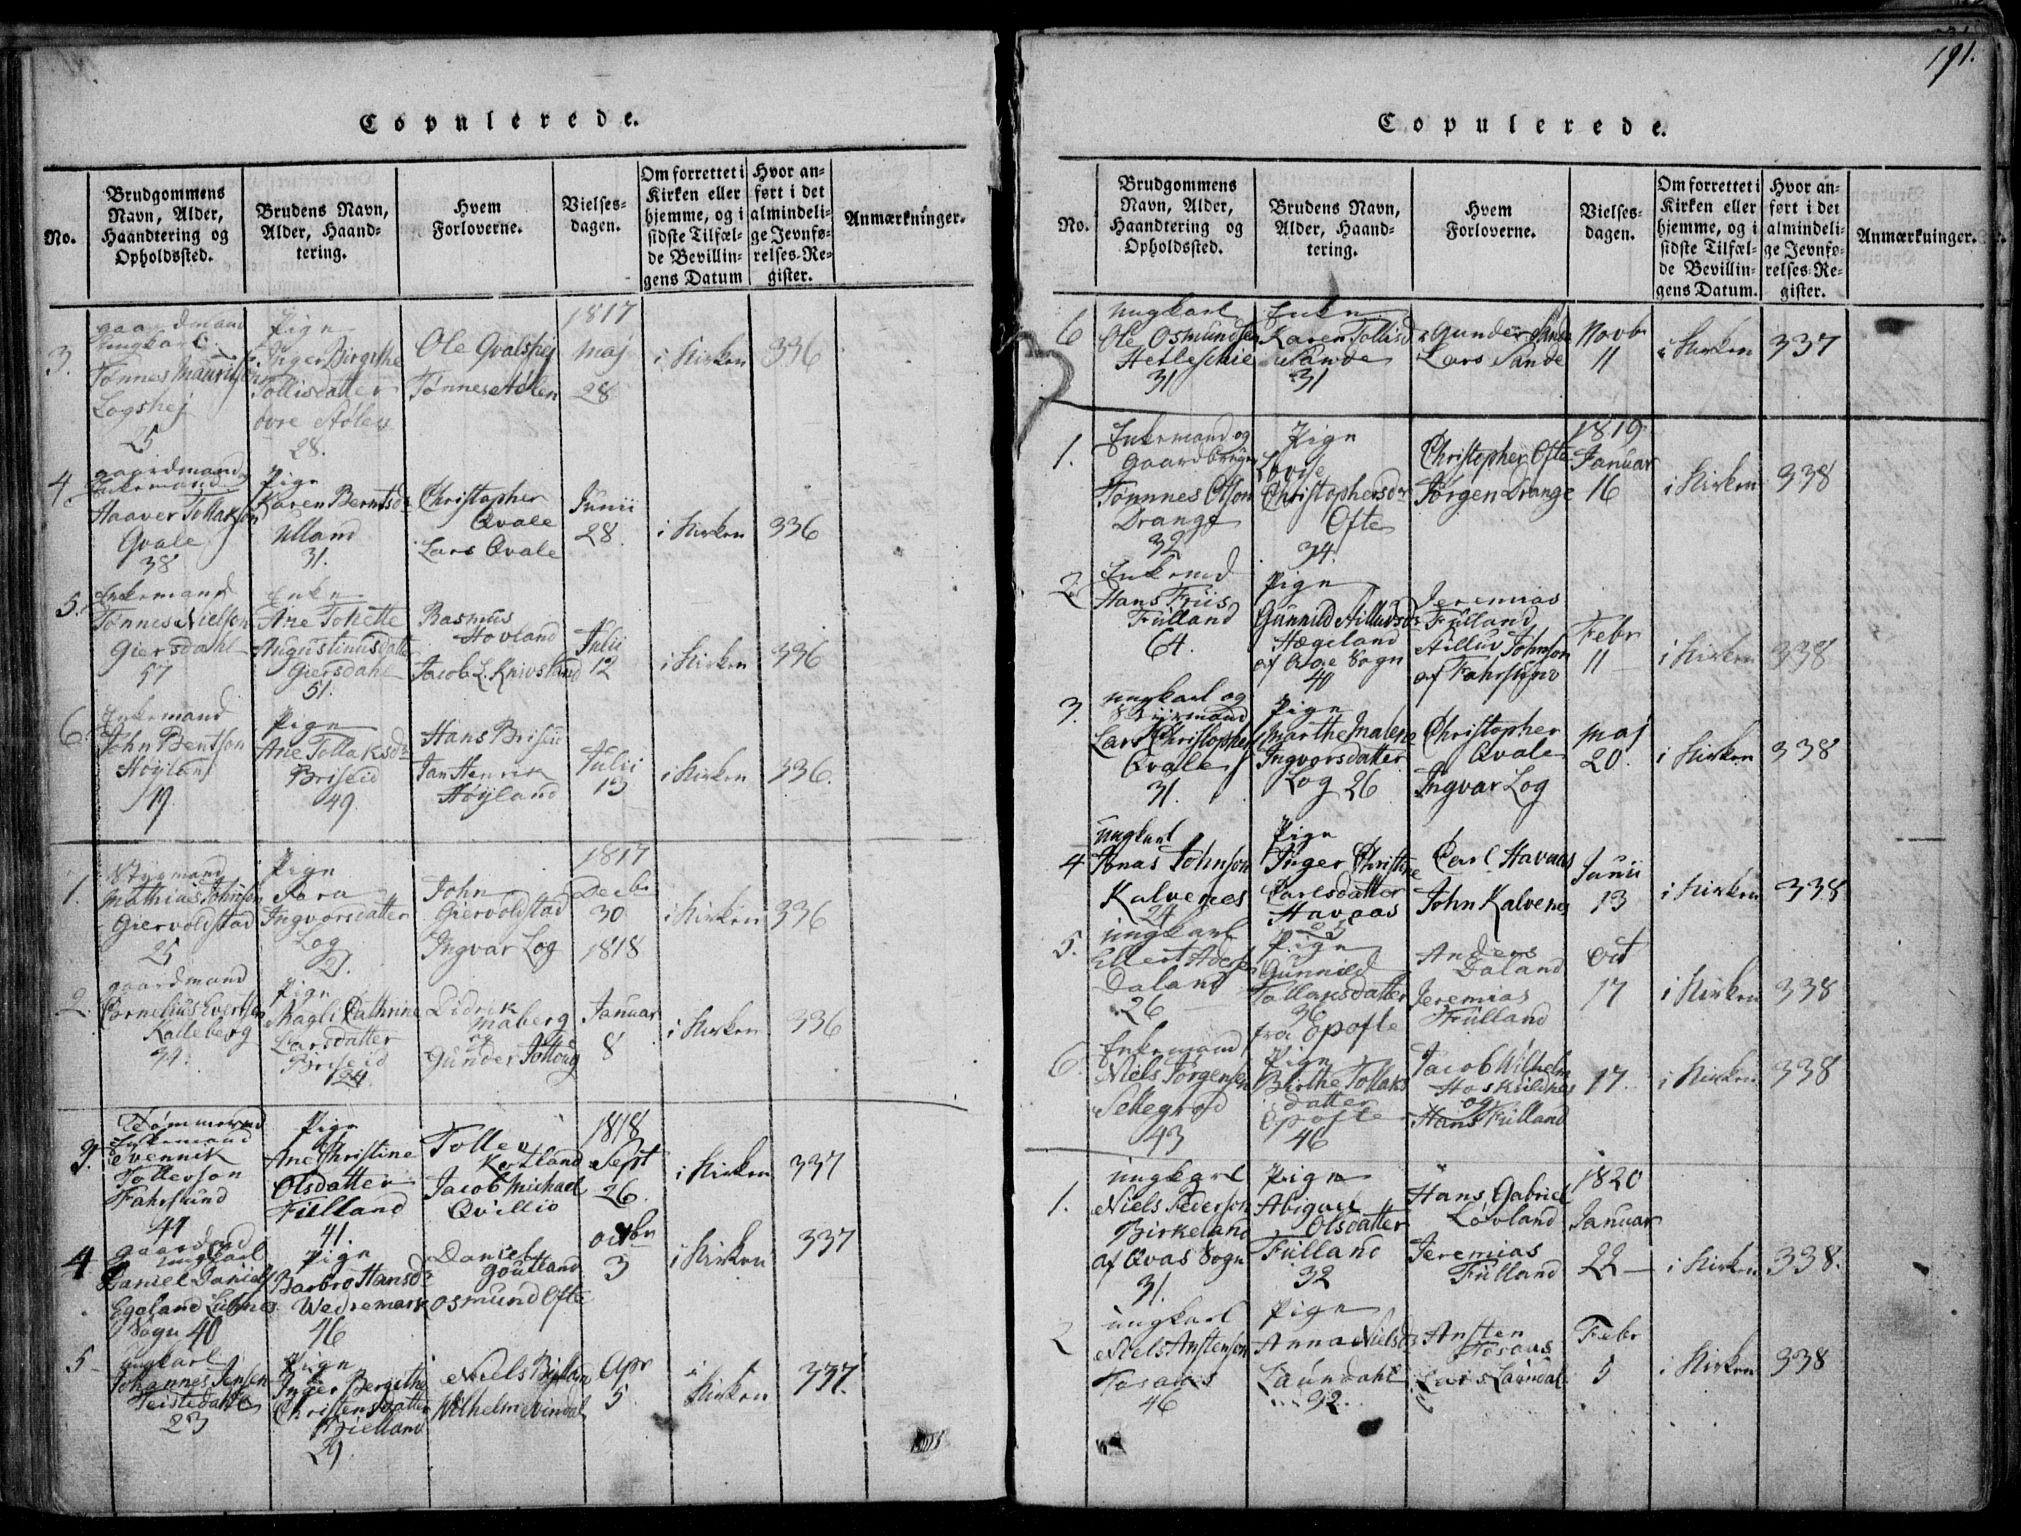 191.
Copulerede.
No.
Brudgommens Navn, Alder, Haandtering og Opholdssted.
Brudens Navn, Alder, Haandtering.
Hvem Forloverne.
Vielsesdagen.
Om forrettet i Kirken eller hjemme, og i sidste Tilfælde Bevillingens Datum
Hvor anført i det almindelige Jevnførelses-Register.
Anmærkninger.
3.
gaardmand
ungkarl
Tønnes
Logshej
25
Pige
Inger Birgithe
Tollisdatter
øvre Stølen
28.
Ole Qvalshej
Tønnes Stølen
1817
Maj
28
i Kirken
336
4.
gaardmand
Enkemand
Haaver Tollakson
Qvale
38
Pige
Karen Berntsdr
Ulland
31.
Christopher
Qvale
Lars Qvale
Junii
28.
i Kirken
336
5.
Enkemand
Tønnes Nielson
Giersdahl
57
Enke
Ane Tohette
Augustinusdatter
Giersdahl
51.
Rasmus
Hovland
Jacob L. Knivsland
Julii
12
i Kirken
336
6.
Enkemand
John Bentson
Høyland
Pige
Ane Tollaksdr
Briseid
49.
Hans Briseid
Jan Henrik
Høyland
Julii
13
i Kirken
336.
1.
Styrmand
Mathias Johnson
Giervoldstad
25
Pige
Sara
Ingvorsdatter
Log
John
Giervoldstad
Ingvar Log
1817
Decbr
30
1818
i Kirken
336
2.
gaardmand
Cornelius Evertsen
Kalleberg
Pige
Magli Cathrine
Larsdatter
Briseid
24
Didrik
Maberg
og
Gunder
Januar
8
i Kirken
336
3.
Tømmermd
Enkemand
Svennik
Tollerson
Fahrsund
Pige
Ane Christine
Olsdatter
Fülland
41.
Tollev
Kortland
Jacob Michael
Qvillio
1818
Sept
26.
i Kirken
337
4
gaardmd
ungkarl
Daniel Daniels
Egeland
Sogn 40
Pige
Barbro Hansdr
Wedremark
46
Daniel
Goutland
Osmund Ofte
octbr
3
i Kirken
337
5
ungkarl
Johannes Jensen
23
Pige
Inger Bergithe
Christensdatter
Bielland
29
Niels
Wilhelm
Apr
5
i Kirken
337.
Copulerede.
No.
Brudgommens Navn, Alder, Haandtering og Opholdssted.
Brudens Navn, Alder, Haandtering.
Hvem Forloverne.
Vielsesdagen.
Om forrettet i Kirken eller hjemme, og i sidste Tilfælde Bevillingens Datum.
Hvor anført i det almindelige Jevnførelses-Register.
Anmærkninger.
6
ungkarl
Ole Osmundsen
31
Enke
Karen Tollisdr
Sande
31
Gunder Sande
Lars Sande
Novbr
11
i Kirken
337
1.
Enkemand og
gaardbruger
Tønnnes Olson
Drange
32
Pige
Lovise
Christophersdr
Ofte
34
Christopher Ofte
Jørgen Drange
1819
Januar
16
i Kirken
338
2.
Enkemd
Hans Friis
Fülland
64.
Pige
Gunnild
Hægeland
af Sogn
40
Jeremias
Fülland
Johnson
af Fahrsund
Febr
11
i Kirken
338
3.
ungkarl og
Lars Christophers
Qvale
31.
Pige
Marthe Malene
Ingvorsdatter
Log 26
Christopher
Qvale
Ingvar Log
Maj
20.
i Kirken
338
4
ungkarl
Jonas Johnson
Kalvenes
24
Pige
Inger Christine
Carlsdatter
Havaas
25
Carl Havaas
John Kalvenes
Junii
13
i Kirken
338
5.
ungkarl
Ellert
Daland
26
Pige
Gunnild
Tallaksdatter
36
fra Opofte
Anders
Daland
Jeremias
Fülland
Oct
17
i Kirken
338
6.
Enkemand
Niels Jørgensen
Sellegrod
43
Pige
Birthe Tollaks
datter
Opofte
46
Jacob Wilhelm
og
Hans Fülland
17.
i Kirken
338
1.
ungkarl
Niels Pederson
Birkeland
af Qvas Sogn
31.
Pige
Abigael
Olsdatter
Fülland
32
Hans Gabriel
Løvland
Jeremias
Fülland
1820
Januar
22
i Kirken
338.
2
ungkarl
Niels Anstenson
Tosaas
46
Pige
Anna Nielsdr
Laundahl
32.
Ansten
Tosaas
Lars Laundal
Febr
5
i Kirken
338